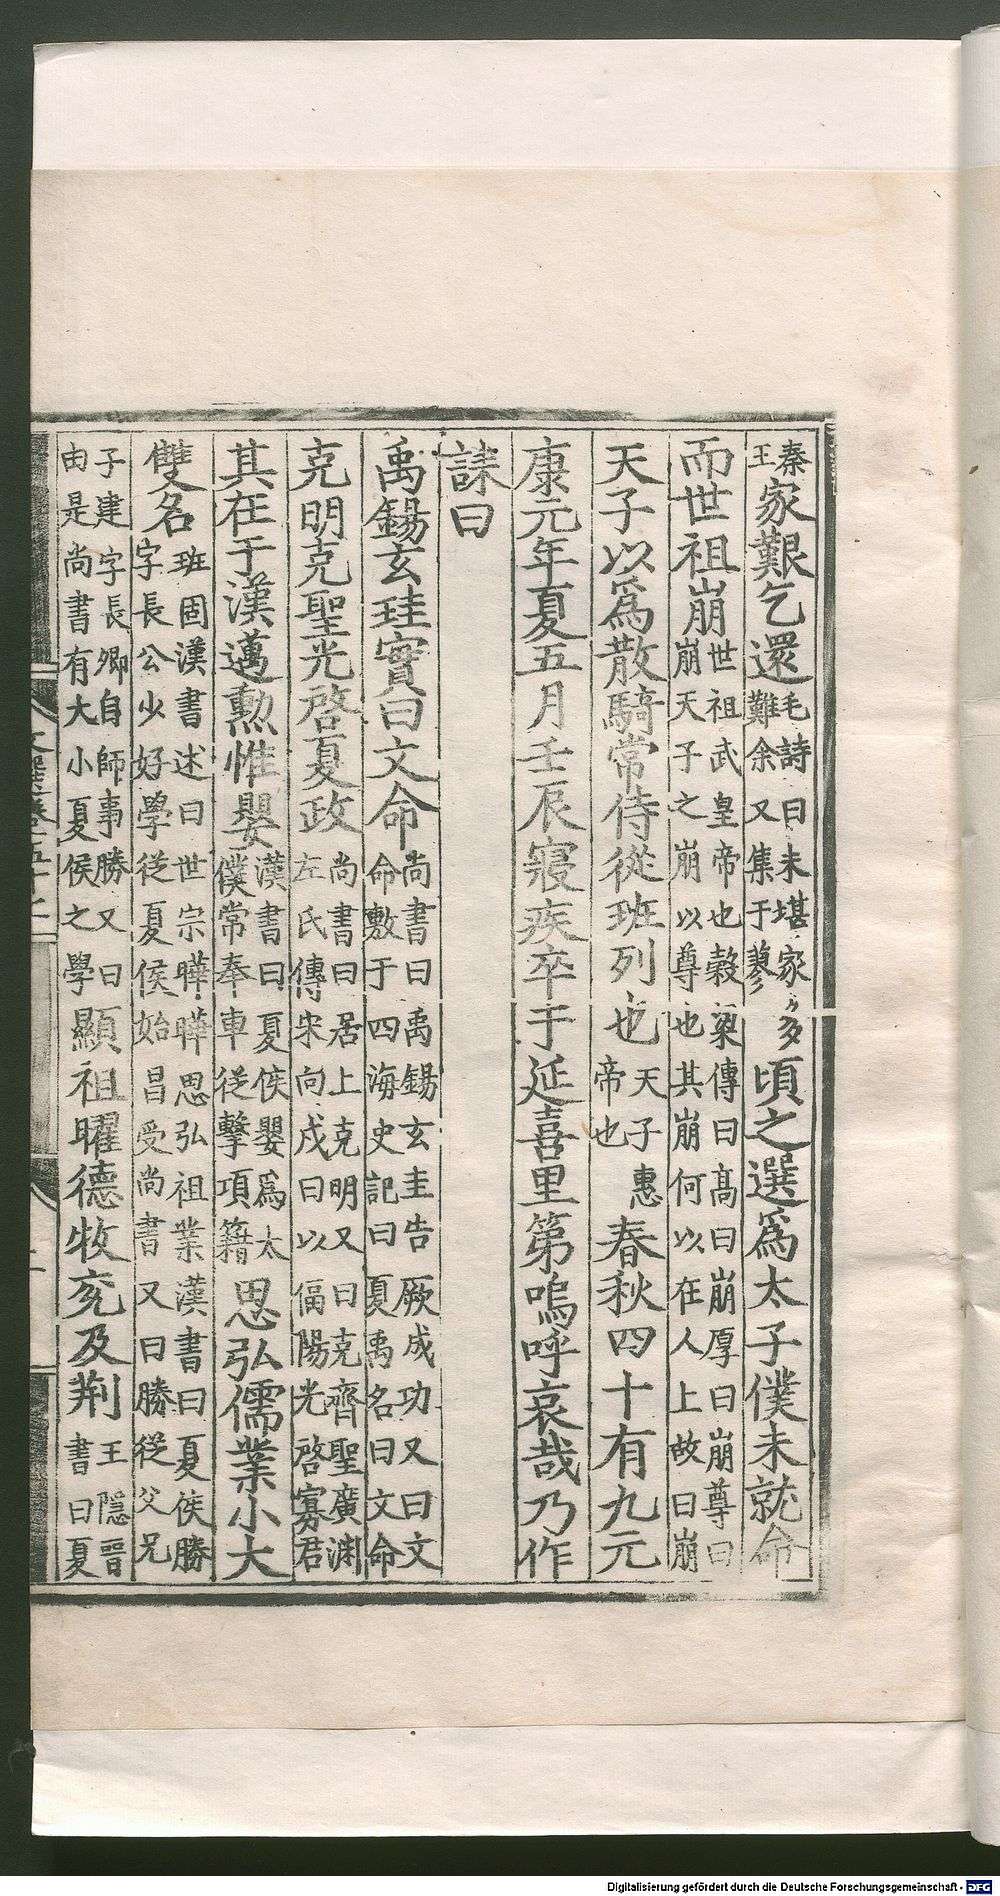 秦王家艱乞還毛詩曰未堪家多難余又集于蓼頃之選爲太子僕未就命
而世祖崩世祖武皇帝也穀梁傳曰高曰崩厚曰崩尊曰崩天子之崩以尊也其崩何以在人上故曰崩
天子以爲散騎常侍從班列也天子惠帝也春秋四十有九元
康元年夏五月壬辰寢疾卒于延喜里第嗚呼哀哉乃作
誄曰
禹錫玄珪實曰文命尚書曰禹錫玄圭告厥成功又曰文命敷于四海史記曰夏禹名曰文命
克明克聖光啓夏政尚書曰居上克明又曰克齊聖廣淵左氏傳宋向戌曰以偪陽光啓寡君
其在于漢邁勲惟嬰漢書曰夏侯嬰爲太僕常奉車從擊項籍思弘儒業小大
雙名班固漢書述曰世宗曄曄思弘祖業漢書曰夏侯勝字長公少好學從夏侯始昌受尚書又曰勝從父兄
子建字長卿自師事勝又曰由是尚書有大小夏侯之學顯祖曜德牧兖及荆王隱晉書曰夏
Digitalisierung gefördert durch die Deutsche Forschungsgemeinschaft - DFG